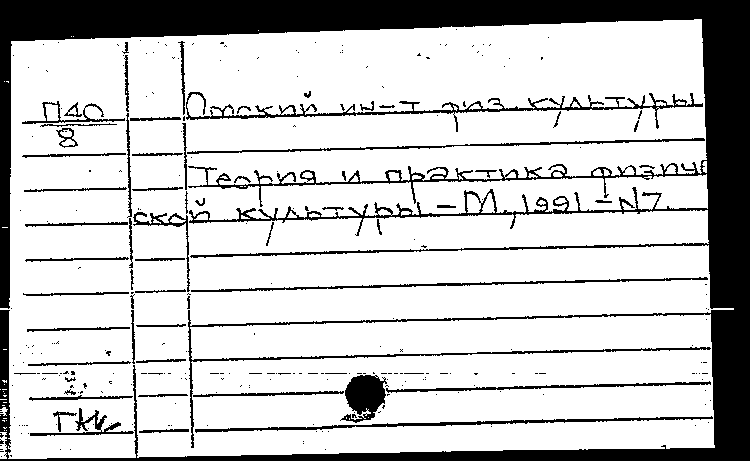 П40
8
Омский ин-т физ. культуры
Теория и практика физиче
ской культуры – М., 1991 – N7.